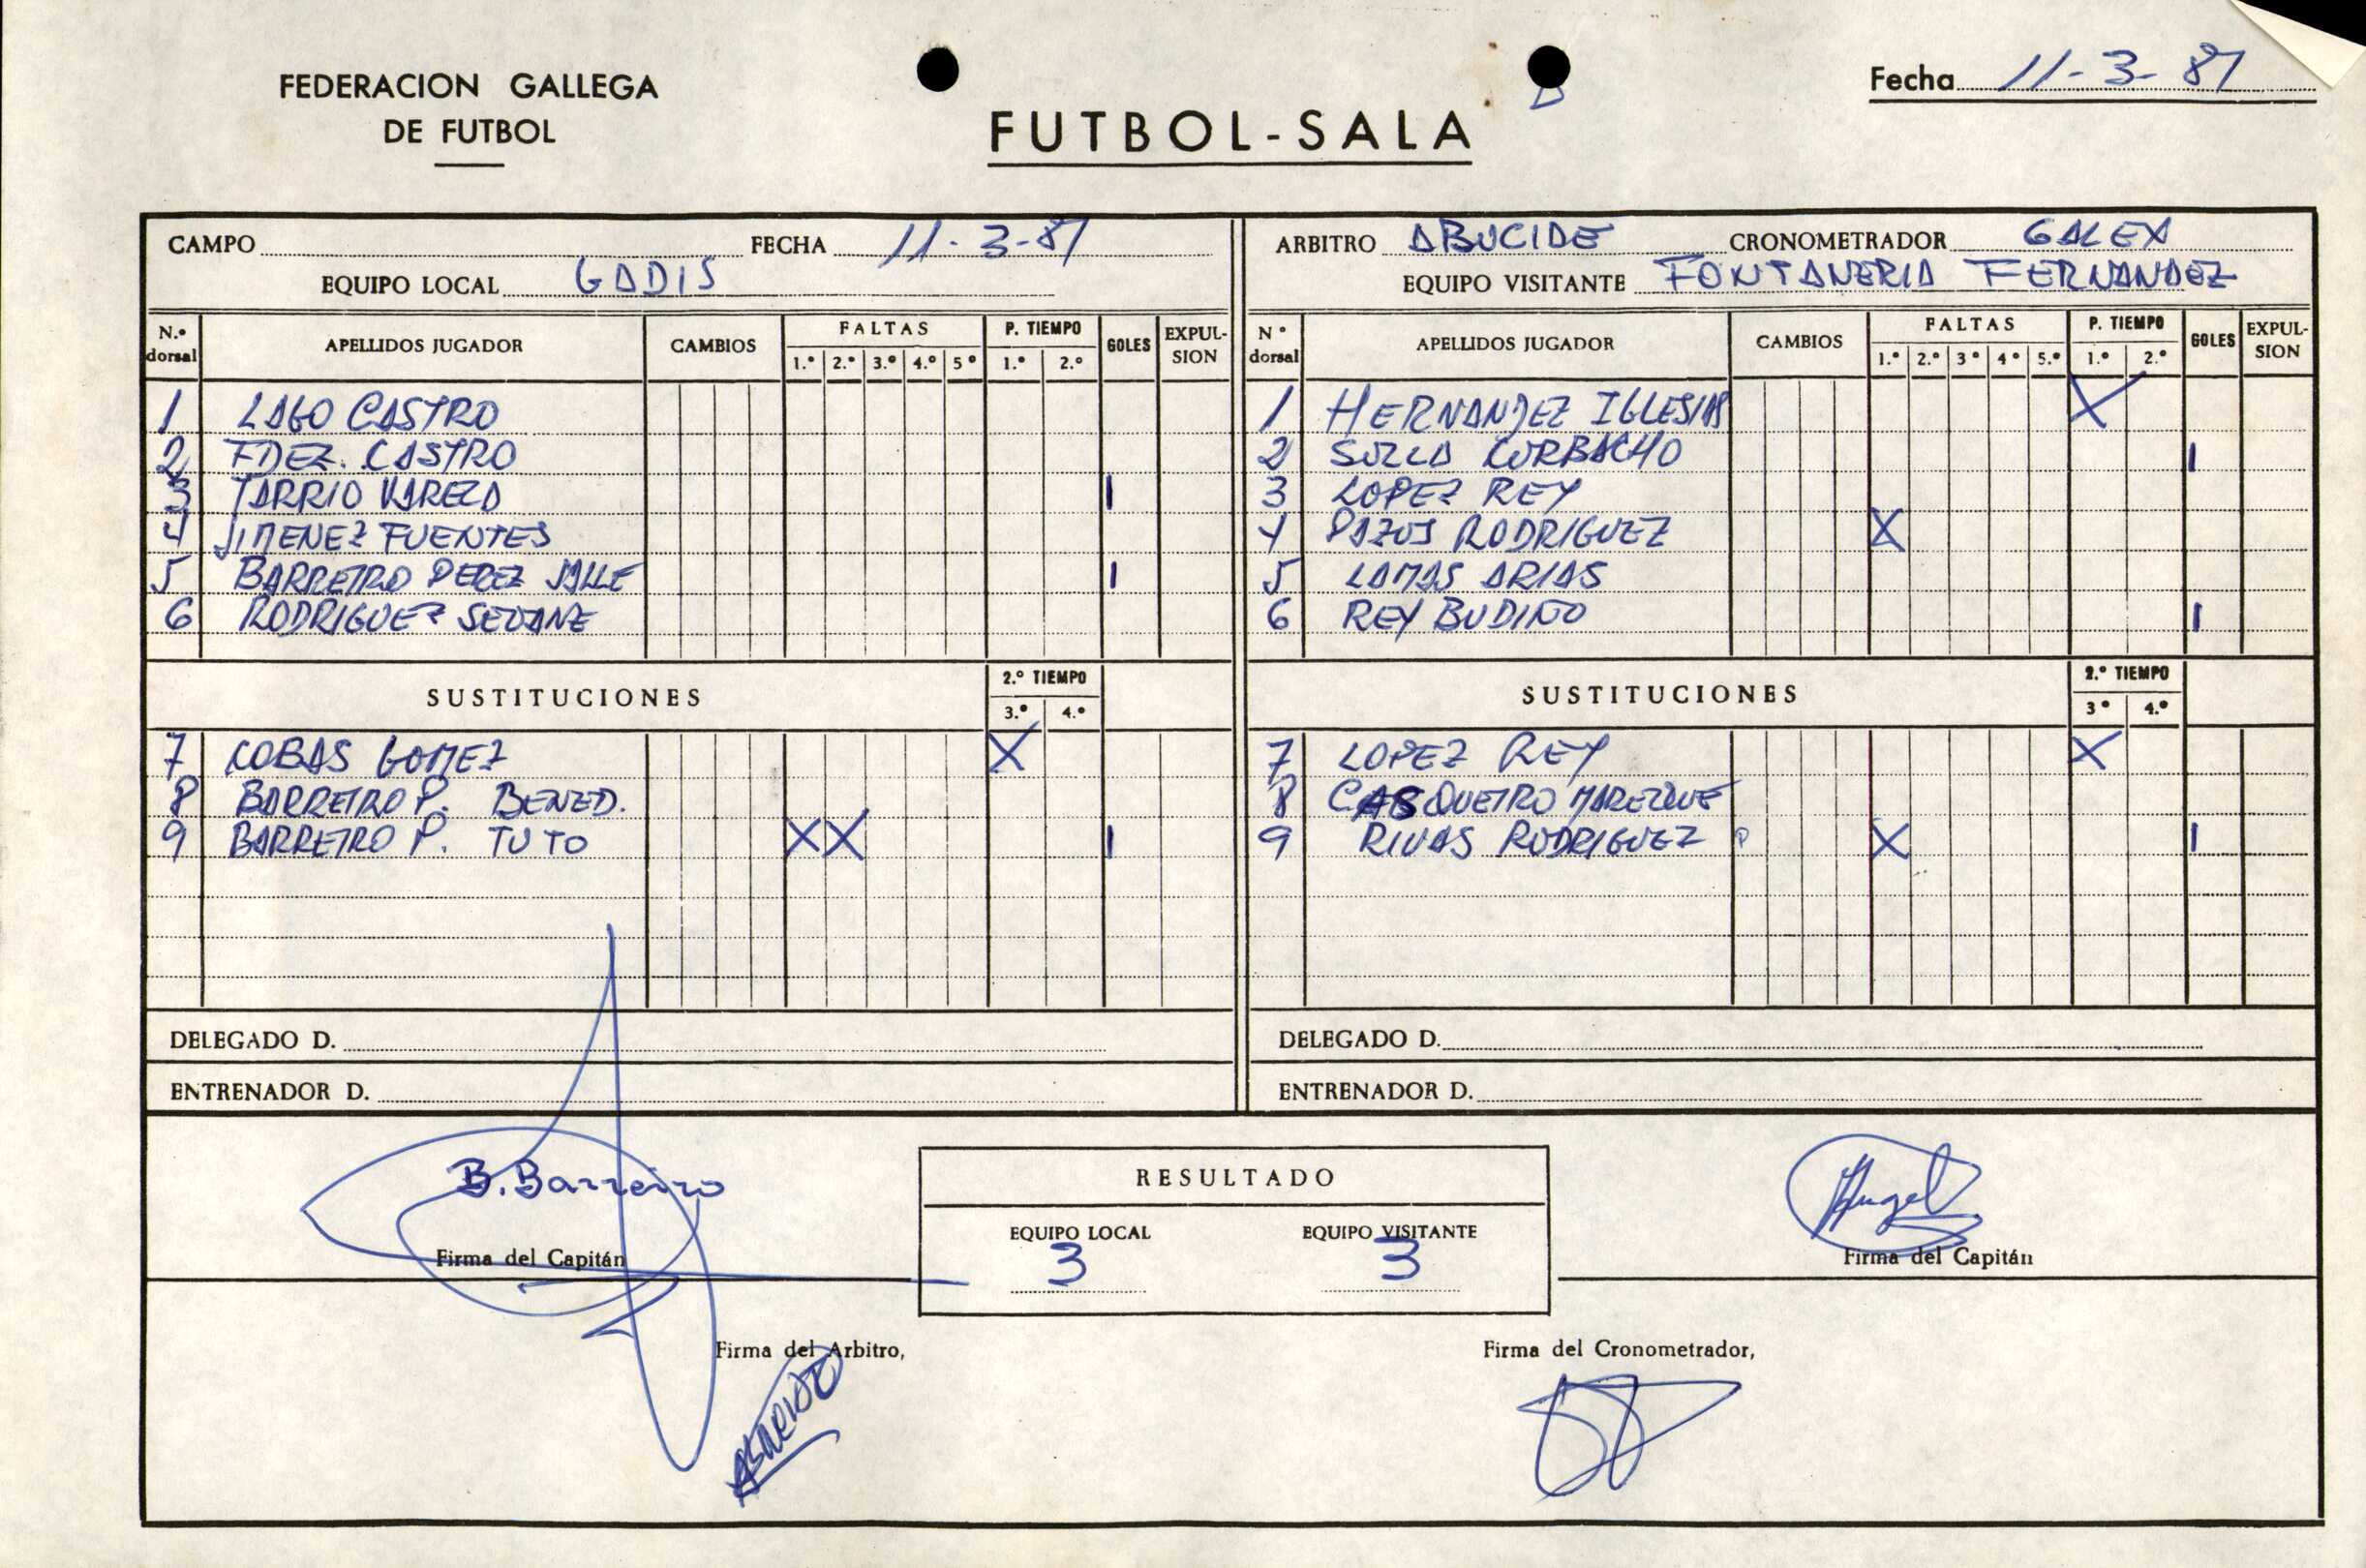 FEDERACION GALLEGA
DE FUTBOL
FUTBOL-SALA
Fecha 11-3-87
CAMPO FECHA 11-3-87
EQUIPO LOCAL GADIS
N.º dorsal APELLIDOS JUGADOR CAMBIOS FALTAS 1.º 2.º 3.º 4.º 5º P. TIEMPO 1.º 2.º GOLES EXPUL-SION
1 LAGO CASTRO
2 FDEZ. CASTRO
3 TARRIO VARELA I
4 JIMENEZ FUENTES
5 BARREIRO PEREZ I
6 RODRIGUEZ SEOANE
SUSTITUCIONES 2.º TIEMPO 3.º 4.º
7 COBAS GOMEZ X
8 BARREIRO P. BENED.
9 BARREIRO P. TUTO X X I
DELEGADO D.
ENTRENADOR D.
ARBITRO CRONOMETRADOR GALEX
EQUIPO VISITANTE FONTANERIA FERNANDEZ
Nº dorsal APELLIDOS JUGADOR CAMBIOS FALTAS 1.º 2.º 3º 4º 5.º P. TIEMPO 1.º 2.º GOLES EXPUL-SION
1 HERNANDEZ IGLESIAS X
2 CORBACHO I
3 LOPEZ REY
4 PAZOS RODRIGUEZ X
5 LAMAS ARIAS
6 REY BUDIÑO I
SUSTITUCIONES 2.º TIEMPO 3º 4.º
7 LOPEZ REY X
8 CASQUEIRO
9 RIVAS RODRIGUEZ X I
DELEGADO D.
ENTRENADOR D.
B. Barreiro
Firma del Capitán
RESULTADO
EQUIPO LOCAL EQUIPO VISITANTE
3 3
Angel
Firma del Capitán
Firma del Arbitro,
Firma del Cronometrador,